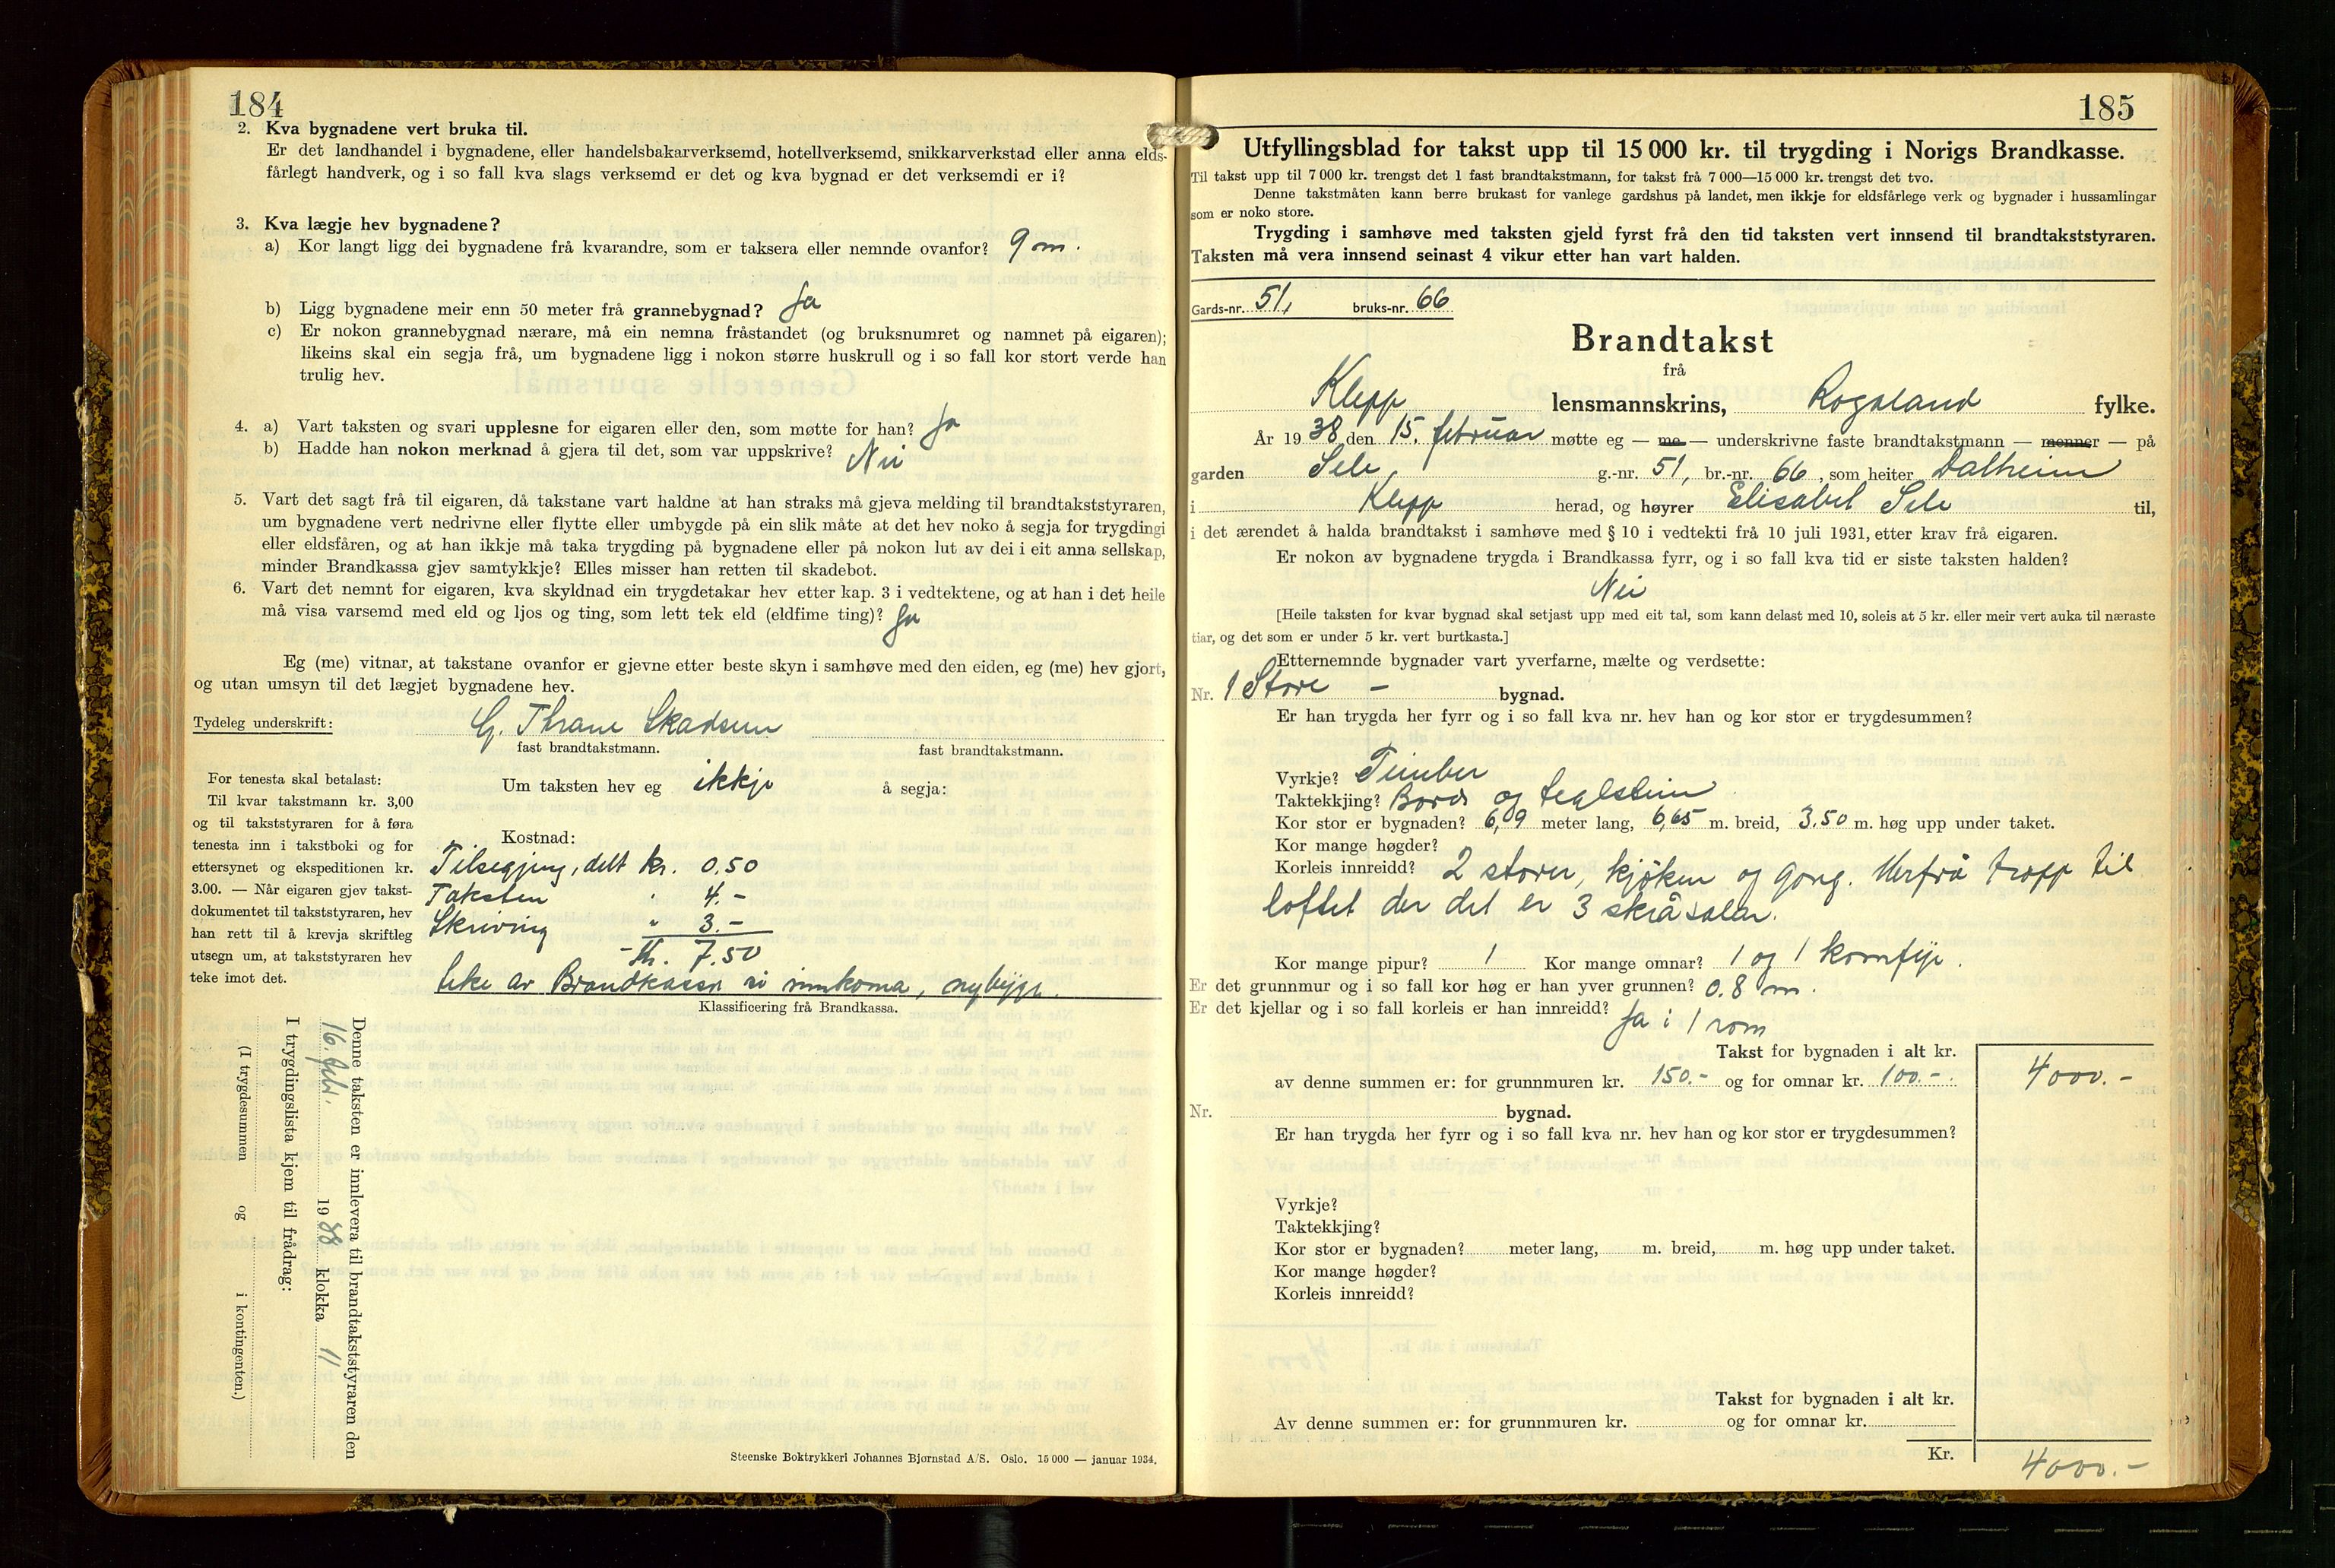 184
2. Kva bygnadene vert bruka til.
Er det landhandel i bygnadene, eller handelsbakarverksemd, hotellverksemd, snikkarverkstad eller anna elds-
fårlegt handverk, og i so fall kva slags verksemd er det og kva bygnad er det verksemdi er i?
3. Kva lægje hev bygnadene?
a) Kor langt ligg dei bygnadene frå kvarandre, som er taksera eller nemnde ovanfor? 9 m.
b) Ligg bygnadene meir enn 50 meter frå grannebygnad? Ja
c) Er nokon grannebygnad nærare, må ein nemna fråstandet (og bruksnumret og namnet på eigaren);
likeins skal ein segja frå, um bygnadene ligg i nokon større huskrull og i so fall kor stort verde han
trulig hev.
4. a) Vart taksten og svari upplesne for eigaren eller den, som møtte for han? Ja
b) Hadde han nokon merknad å gjera til det, som var uppskrive? Nei
5. Vart det sagt frå til eigaren, då takstane vart haldne at han straks må gjeva melding til brandtakststyraren,
um bygnadene vert nedrivne eller flytte eller umbygde på ein slik måte at det hev noko å segja for trygdingi
eller eldsfåren, og at han ikkje må taka trygding på bygnadene eller på nokon lut av dei i eit anna sellskap,
minder Brandkassa gjev samtykkje? Elles misser han retten til skadebot.
6. Vart det nemnt for eigaren, kva skyldnad ein trygdetakar hev etter kap. 3 i vedtektene, og at han i det heile
må visa varsemd med eld og ljos og ting, som lett tek eld (eldfime ting)? Ja
Eg (me) vitnar, at takstane ovanfor er gjevne etter beste skyn i samhøve med den eiden, eg (me) hev gjort,
og utan umsyn til det lægjet bygnadene hev.
Tydeleg underskrift: G. Thrane Skadsem
fast brandtakstmann. fast brandtakstmann.
For tenesta skal betalast:
Til kvar takstmann kr. 3,00
og til takststyraren for å føra
tenesta inn i takstboki og for
ettersynet og ekspeditionen kr.
3.00. — Når eigaren gjev takst-
dokumentet til takststyraren, hev
han rett til å krevja skriftleg
utsegn um, at takststyraren hev
teke imot det.
Um taksten hev eg ikkje å segja:
Kostnad:
Tilsegjing, delt kr. 0.50
Taksten " 4.-
Skriving " 3.-
Kr. 7.50
av Brandkassa innkoma, nybygg.
Klassificering frå Brandkassa.
Denne taksten er innlevera til brandtakststyraren den
16. febr. 1938 klokka 11
I trygdingslista kjem til frådrag:
(I trygdesummen og i kontingenten.)
Steenske Boktrykkeri Johannes Bjørnstad A/S. Oslo. 15 000 — januar 1934.
185
Utfyllingsblad for takst upp til 15 000 kr. til trygding i Norigs Brandkasse.
Til takst upp til 7 000 kr. trengst det 1 fast brandtakstmann, for takst frå 7 000—15 000 kr. trengst det tvo.
Denne takstmåten kann berre brukast for vanlege gardshus på landet, men ikkje for eldsfårlege verk og bygnader i hussamlingar
som er noko store.
Trygding i samhøve med taksten gjeld fyrst frå den tid taksten vert innsend til brandtakststyraren.
Taksten må vera innsend seinast 4 vikur etter han vart halden.
Gards-nr. 51, bruks-nr. 66
Brandtakst
frå
Klepp lensmannskrins, Rogaland fylke.
År 1938 den 15. februar møtte eg — me — underskrivne faste brandtakstmann — menner — på
garden Sele, g.-nr. 51, br.-nr. 66, som heiter Dalheim
i Klepp herad, og høyrer Elisabet Sele til,
i det ærendet å halda brandtakst i samhøve med § 10 i vedtekti frå 10 juli 1931, etter krav frå eigaren.
Er nokon av bygnadene trygda i Brandkassa fyrr, og i so fall kva tid er siste taksten halden?
Nei
[Heile taksten for kvar bygnad skal setjast upp med eit tal, som kann delast med 10, soleis at 5 kr. eller meir vert auka til næraste
tiar, og det som er under 5 kr. vert burtkasta.]
Etternemnde bygnader vart yverfarne, mælte og verdsette:
Nr. 1 Stove - bygnad.
Er han trygda her fyrr og i so fall kva nr. hev han og kor stor er trygdesummen?
Vyrkje? Timber
Taktekkjing? Bord og teglstein
Kor stor er bygnaden? 6,09 meter lang, 6,65 m. breid, 3.50 m. høg upp under taket.
Kor mange høgder?
Korleis innreidd? 2 stover, kjøken og gong. Herfrå tropp til
loftet der det er 3 skråsalar.
Kor mange pipur? 1 Kor mange omnar? 1 og 1 komfyr.
Er det grunnmur og i so fall kor høg er han yver grunnen? 0.8 m.
Er det kjellar og i so fall korleis er han innreidd? Ja i 1 rom
Takst for bygnaden i alt kr.
av denne summen er: for grunnmuren kr. 150.- og for omnar kr. 100.- 4000.-
Nr. bygnad.
Er han trygda her fyrr og i so fall kva nr. hev han og kor stor er trygdesummen?
Vyrkje?
Taktekkjing?
Kor stor er bygnaden? meter lang, m. breid, m. høg upp under taket.
Kor mange høgder?
Korleis innreidd?
Takst for bygnaden i alt kr.
Av denne summen er: for grunnmuren kr. og for omnar kr.
Kr. 4000.-